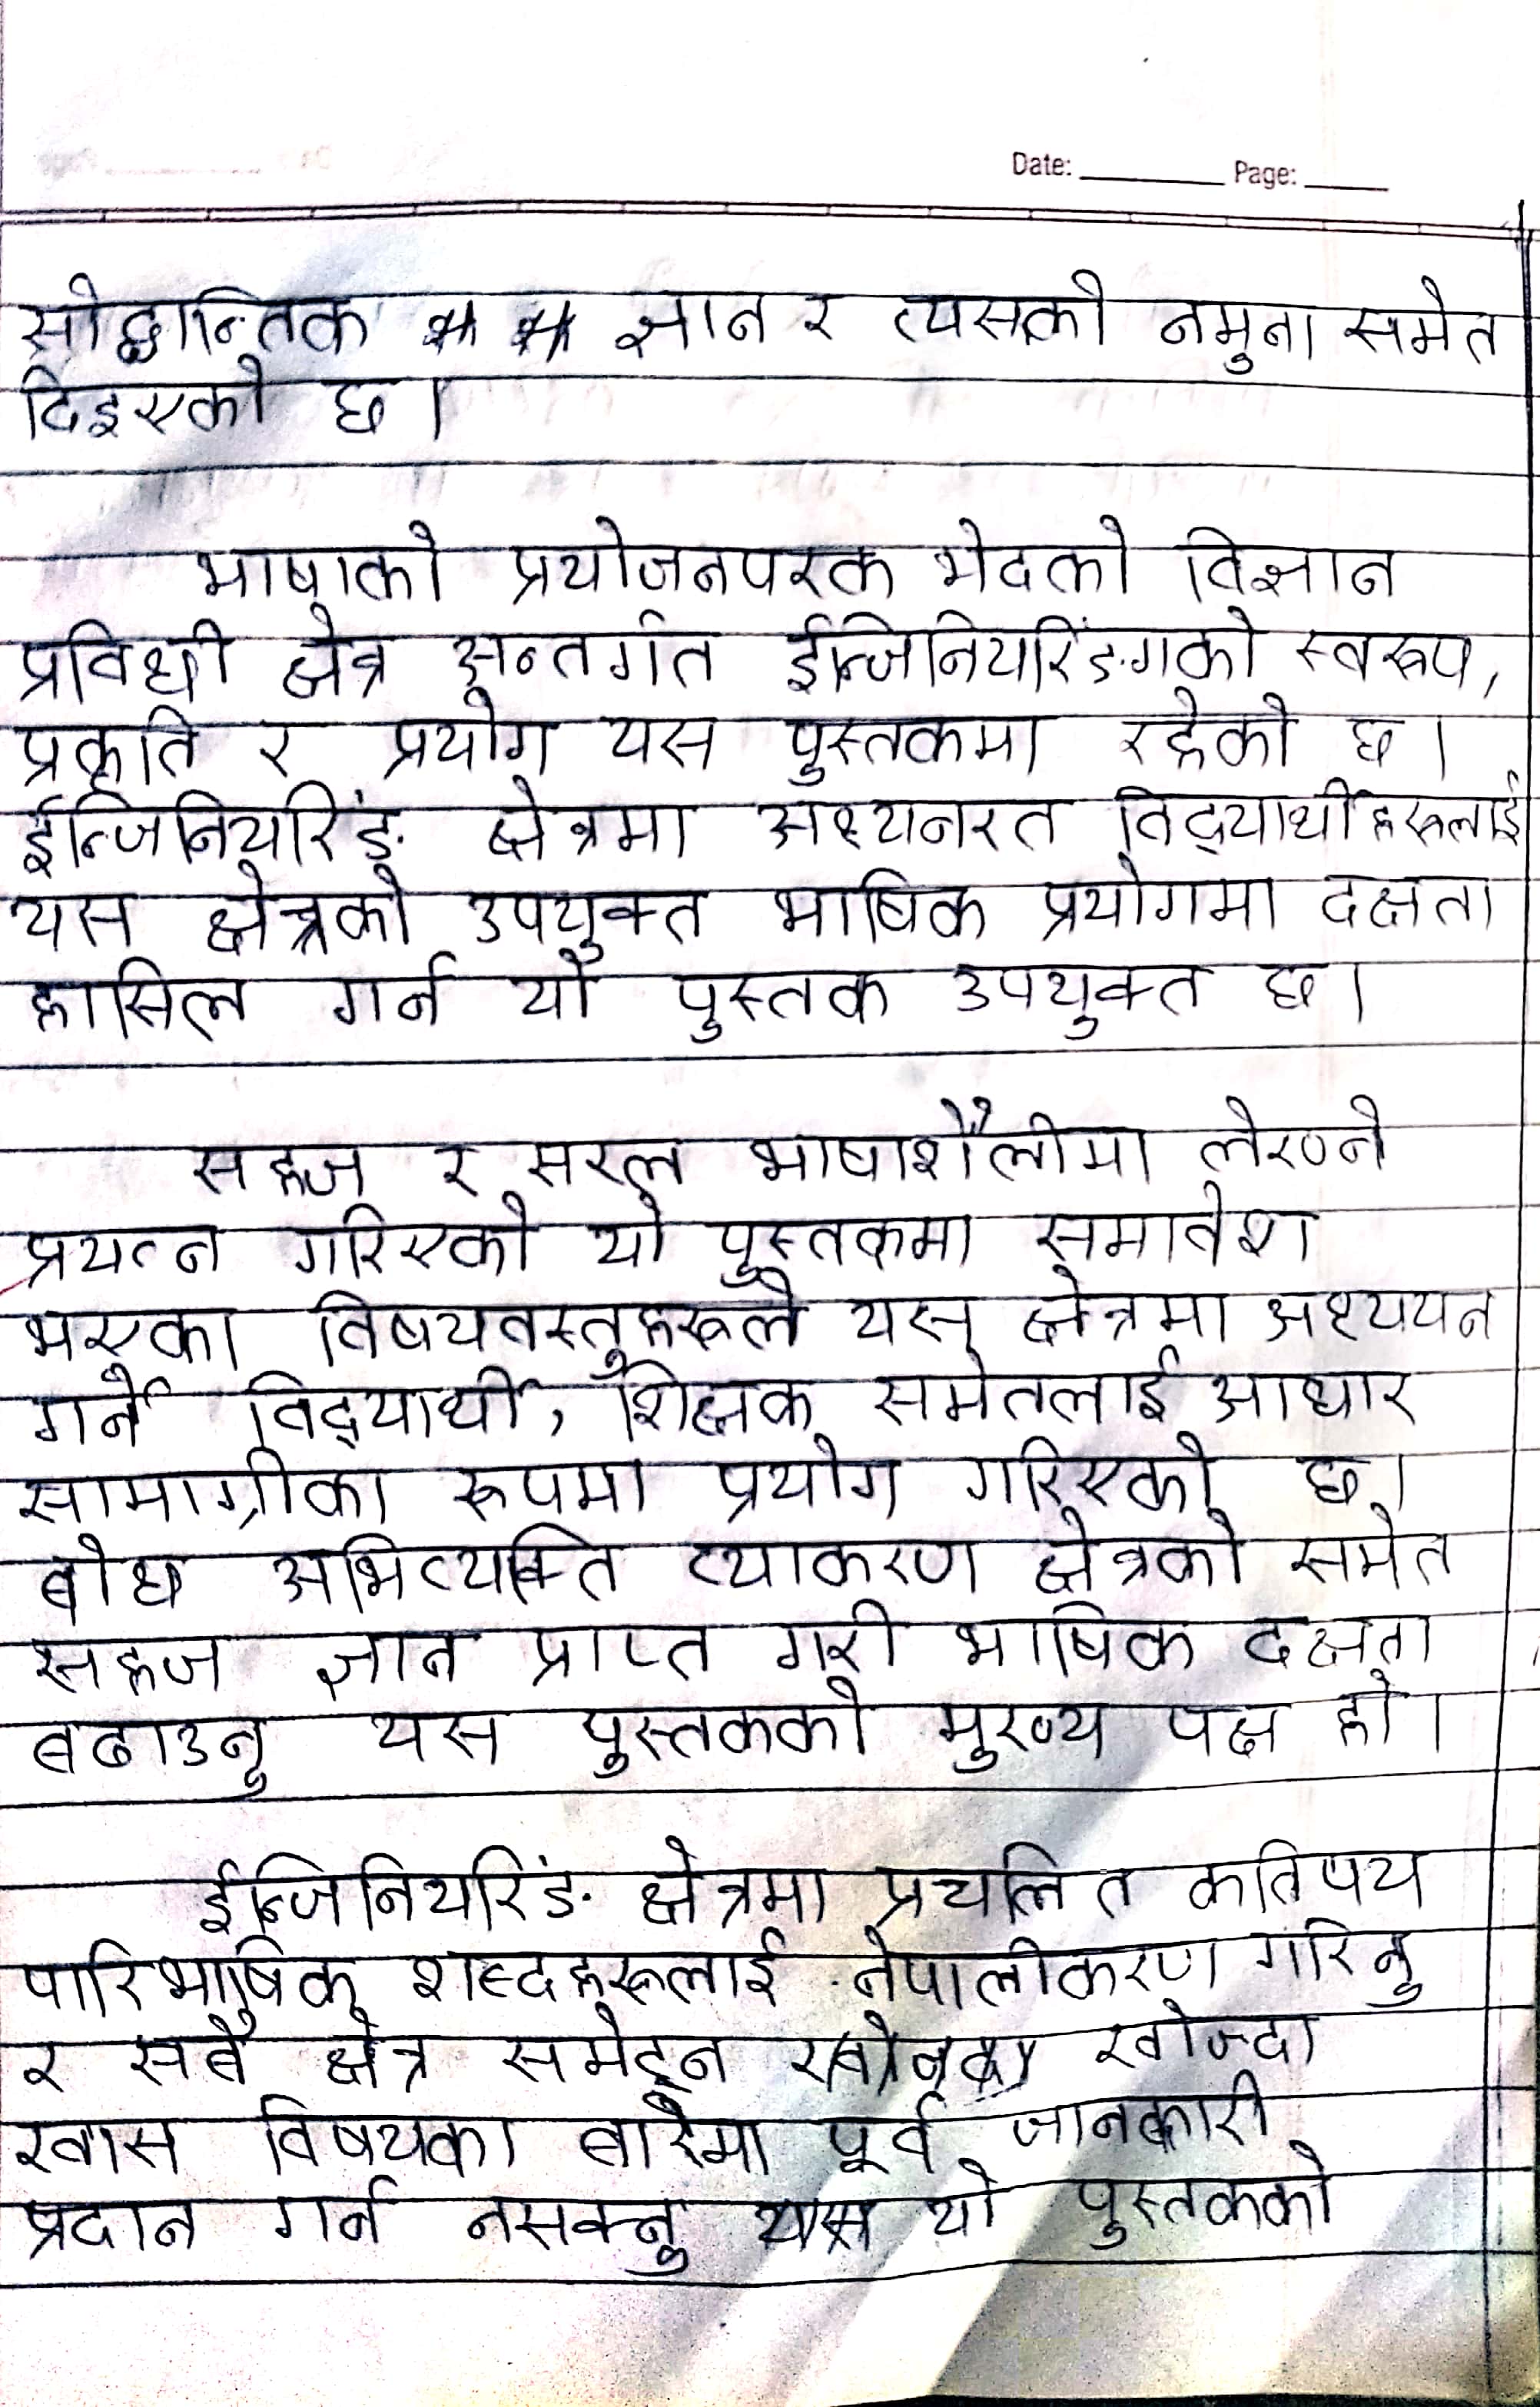 Date: ______ Page: ____
सोद्धान्तिक ज्ञान र त्यसको नमुना समेत
दिइएको छ।
भाषाको प्रयोजनपरक भेदको विज्ञान
प्रविधी क्षेत्र अन्तर्गत ईन्जिनियरिङगको स्वरूप,
प्रकृति र प्रयोग यस पुस्तकमा रहेको छ।
ईन्जिनियरिङ क्षेत्रमा अध्यनरत विद्यार्थीहरूलाई
यस क्षेत्रको उपयुक्त भाषिक प्रयोगमा दक्षता
हासिल गर्न यो पुस्तक उपयुक्त छ।
सहज र सरल भाषाशैलीमा लेख्ने
प्रयत्न गरिएको यो पुस्तकमा समावेश
भएका विषयवस्तुहरूले यस क्षेत्रमा अध्ययन
गर्ने विद्यार्थी, शिक्षक समेतलाई आधार
सामाग्रीका रूपमा प्रयोग गरिएको छ।
बोध अभिव्यक्ति व्याकरण क्षेत्रको समेत
सहज ज्ञान प्राप्त गरी भाषिक दक्षता
बढाउनु यस पुस्तकको मुख्य पक्ष हो।
ईन्जिनियरिङ क्षेत्रमा प्रचलित कतिपय
पारिभाषिक शब्दहरूलाई नेपालीकरण गरिनु
र सबै क्षेत्र समेट्न खोज्दा
खास विषयका बारेमा पूर्व जानकारी
प्रदान गर्न नसक्नु यो पुस्तकको